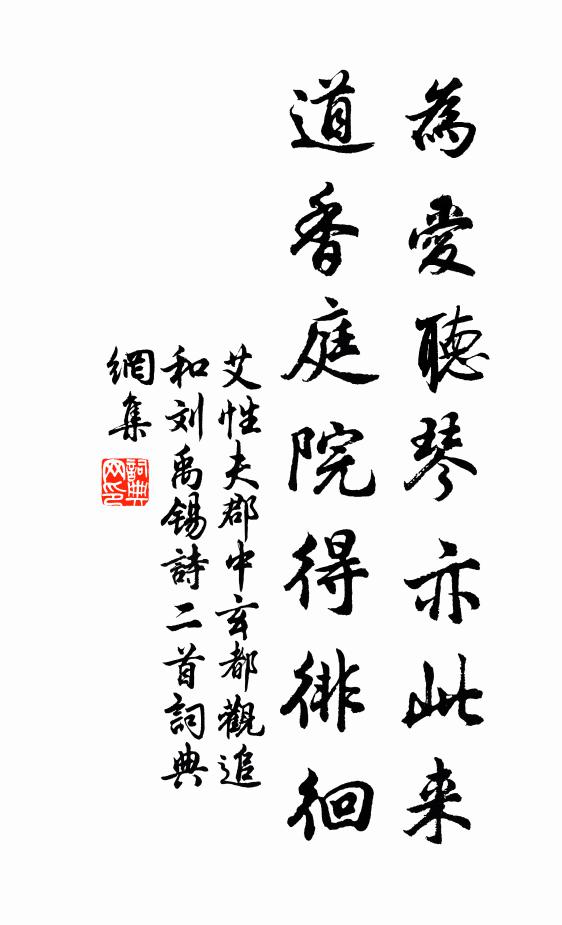 為愛聽琴亦此来
道香庭院得徘徊
艾性夫郡中玄都觀追
和刘禹锡詩二首詞典
網集
詞典網印